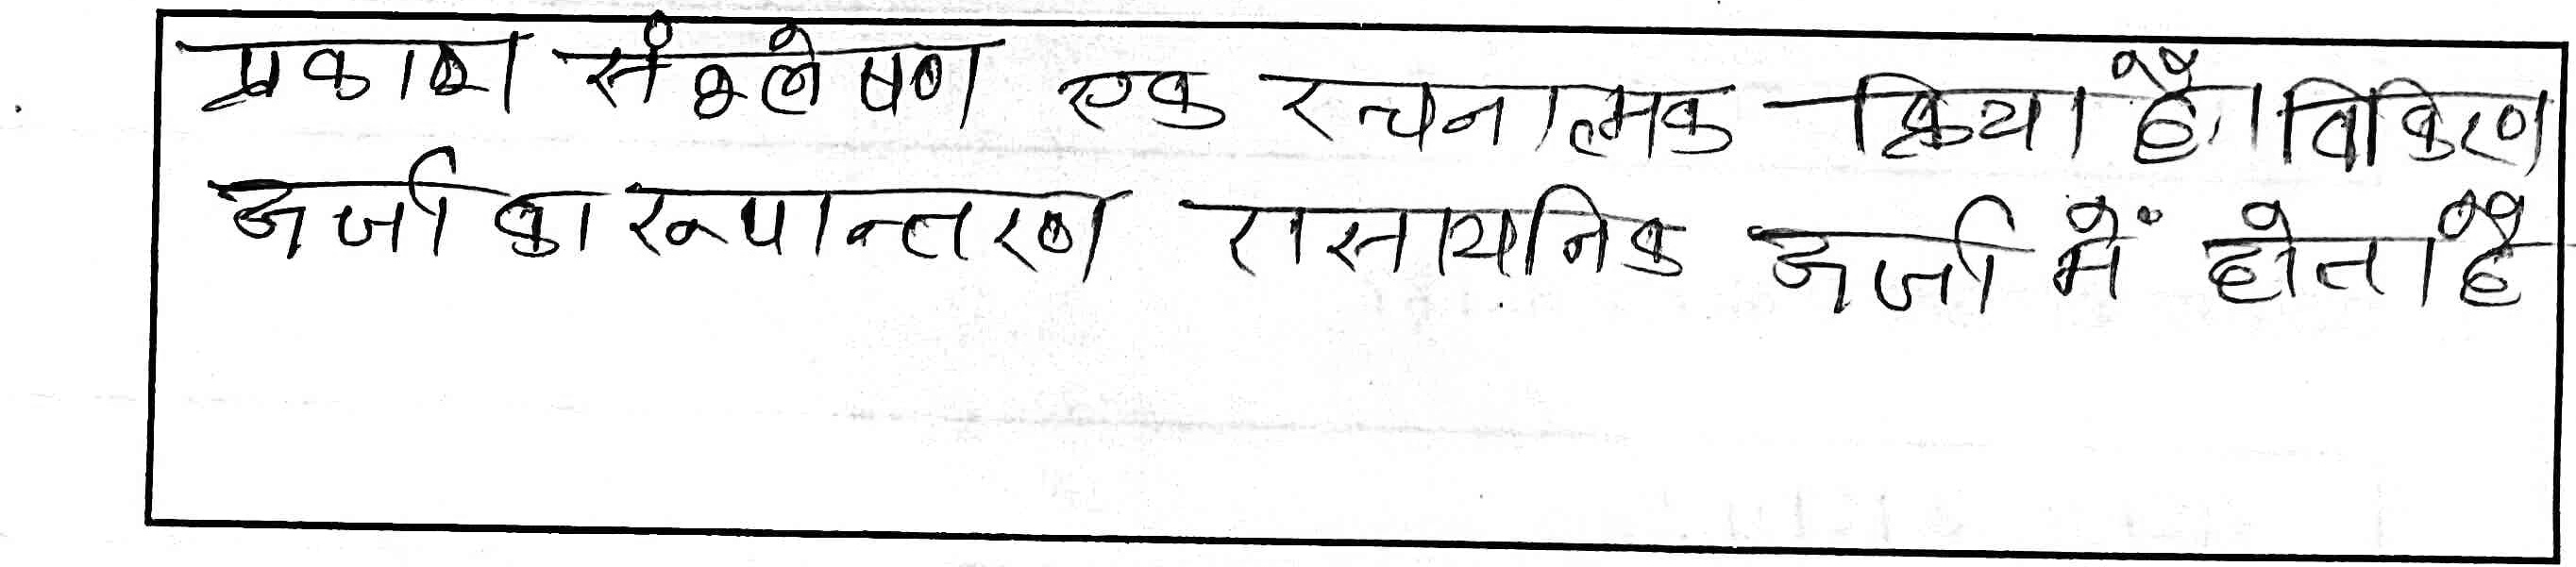 प्रकाश संश्लेषण एक रचनात्मक क्रिया है। विकिरण
ऊर्जा का रूपान्तरण रासायनिक ऊर्जा में होता है